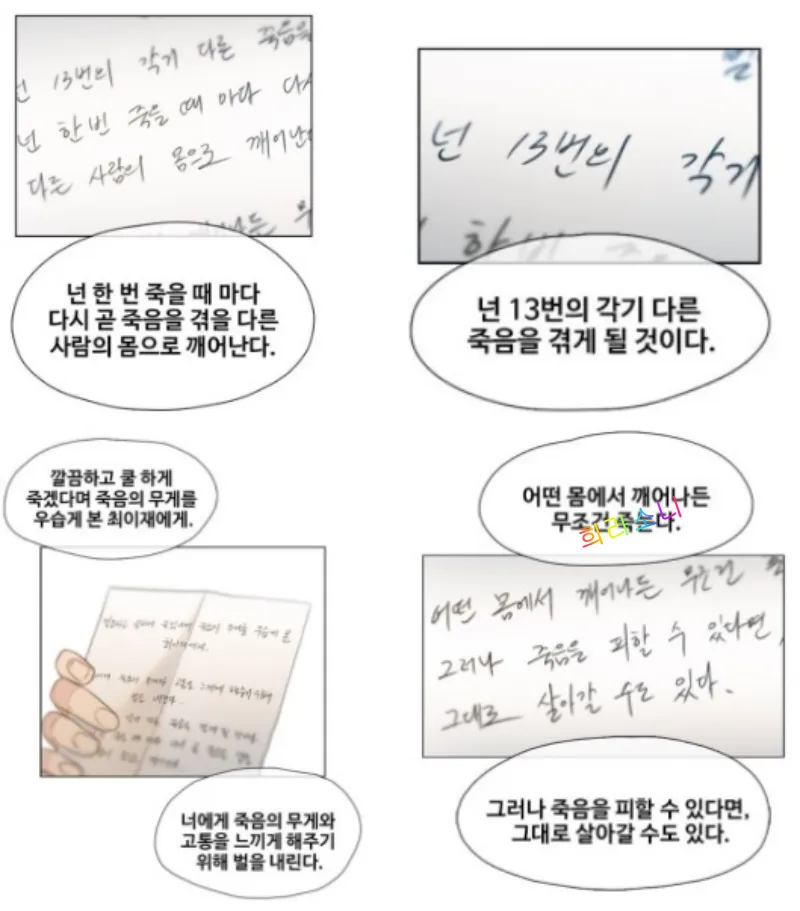 넌 13번의 각기 다른 죽음을
넌 한번 죽을 때 마다 다시
다른 사람의 몸으로 깨어난다
깨어나든
넌 한 번 죽을 때 마다
다시 곧 죽음을 겪을 다른
사람의 몸으로 깨어난다.
넌 13번의 각기
한번
넌 13번의 각기 다른
죽음을 겪게 될 것이다.
깔끔하고 쿨 하게
죽겠다며 죽음의 무게를
우습게 본 최이재에게.
죽음의 무게를 우습게 본
최이재에게.
너에게 죽음의 무게와
고통을 느끼게 해주기
위해 벌을 내린다.
어떤 몸에서 깨어나든
무조건 죽는다.
희라소니
어떤 몸에서 깨어나든 무조건
그러나 죽음을 피할 수 있다면,
그대로 살아갈 수도 있다.
그러나 죽음을 피할 수 있다면,
그대로 살아갈 수도 있다.